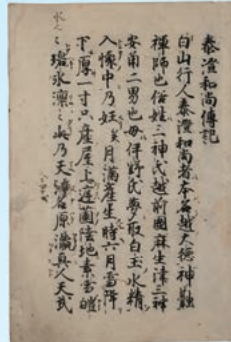 泰澄和尚傳記
白山行人泰澄和尚者本名越大德神融
禪師也俗姓三神氏越前國麻生津三神
安角二男也母伊野氏夢取白玉水精
入懷中乃妊矣月滿產生時六月雪降
下厚一寸只產屋上逕薗陸地素雪皚
凛々此乃天渟名原瀛真人天武